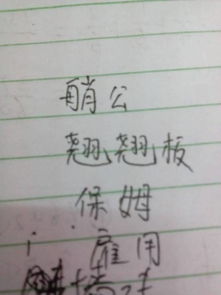 艄公
翘翘板
保姆
雇用